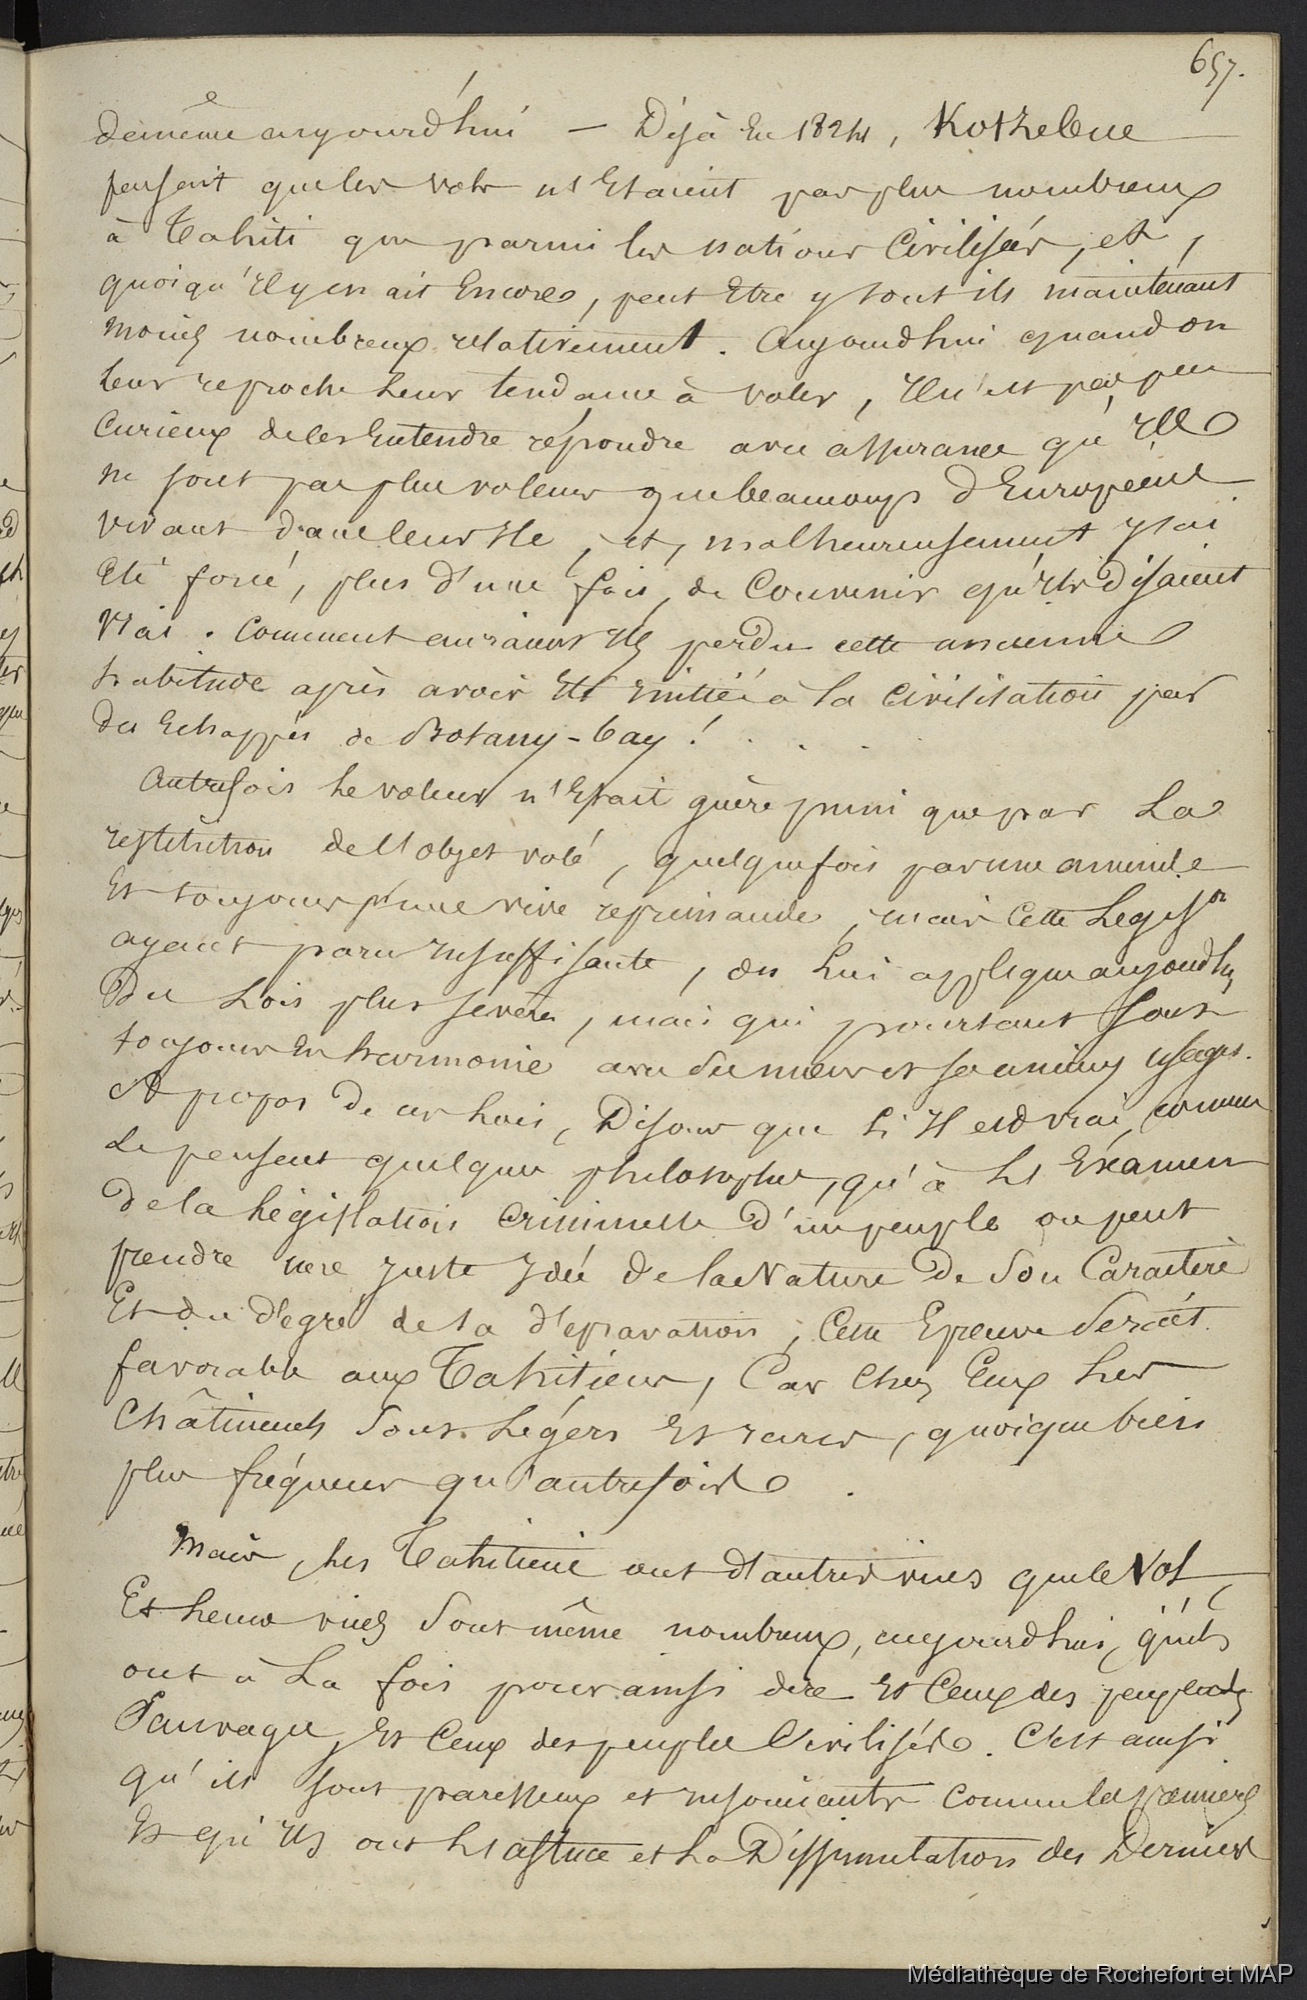 657.
de même aujourd'hui — Déjà en 1824, Kotzebue
pensait que les vols n'étaient pas plus nombreux
à Tahiti que parmi les nations Civilisées, et,
quoiqu'il y en ait Encore, peut Etre y sont ils maintenant
moins nombreux relativement. Aujourd'hui quand on
leur reproche leur tendance à voler, il n'est pas peu
Curieux de les Entendre répondre avec assurance qu'ils
ne sont pas plus voleurs que beaucoup d'Européens
vivant dans leur Ile, et, malheureusement j'ai
Eté forcé, plus d'une fois, de Convenir qu'ils disaient
vrai. Comment auraient ils perdu cette ancienne
habitude après avoir Eté initiés à la Civilisation par
des Echappés de Botany-bay ! . . . .
Autrefois le voleur n'Etait guère puni que par La
restitution de l'objet volé, quelquefois par une amende
Et toujours d'une vive réprimande, mais Cette Legison
ayant paru insuffisante, on lui applique aujourd'hui
Des Lois plus sévères, mais qui pourtant sont
toujours En harmonie avec ses mœurs et ses anciens usages.
A propos de ces Lois, Disons que s'il est vrai, comme
Le pensent quelques philosophes, qu'à L'Examen
De la Législation Criminelle D'un peuple on peut
prendre une juste Idée De la Nature De Son Caractère
Et du Degré de sa dépravation, Cette Epreuve Serait
favorable aux Tahitiens, Car Chez Eux Les
Châtiments Sont Légers Et rares, quoique bien
plus fréquens qu'autrefois.
Mais, Les Tahitiens ont d'autres vices que le vol,
Et Leurs vices Sont même nombreux, aujourd'hui, qu'ils
ont à La fois pour ainsi dire Et Ceux des peuplades
Sauvages, Et Ceux des peuples Civilisés. C'est ainsi
qu'ils sont paresseux et insouciants Comme les premiers
Et qu'ils ont L'astuce et La Dissimulation des Derniers
Médiathèque de Rochefort et MAP